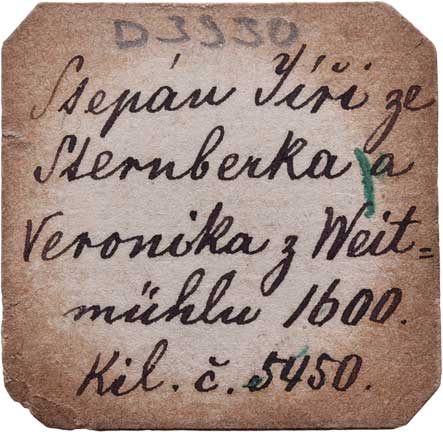 D3930
Stepán Jiři ze
Sternberka a
Veronika z Weit=
mühlu 1600.
Kil. č. 5450.